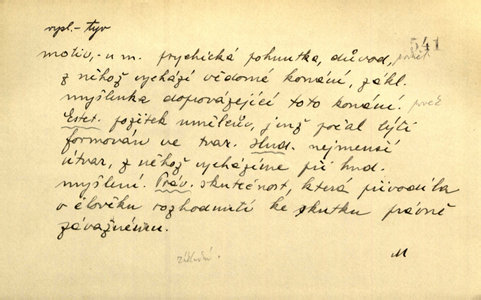 vypl.-tyv
541
motiv,-u m. psychická pohnutka, důvod,
z něhož vychází vědomé konání, zákl.
myšlenka doprovázející toto konání.
Estet. požitek umělcův, jenž počal býti
formován ve tvar. Hud. nejmenší
útvar, z něhož vycházíme při hud.
myšlení. Práv. skutečnost, která přivodila
v člověku rozhodnutí ke skutku právně
závažnému.
základní. M